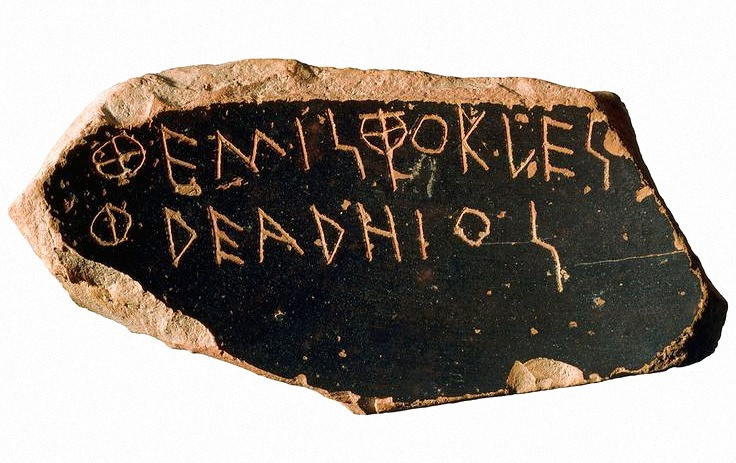 ΘΕΜΙΣΘΟΚΛΕΣ
ΦΡΕΑΡΗΙΟΣ